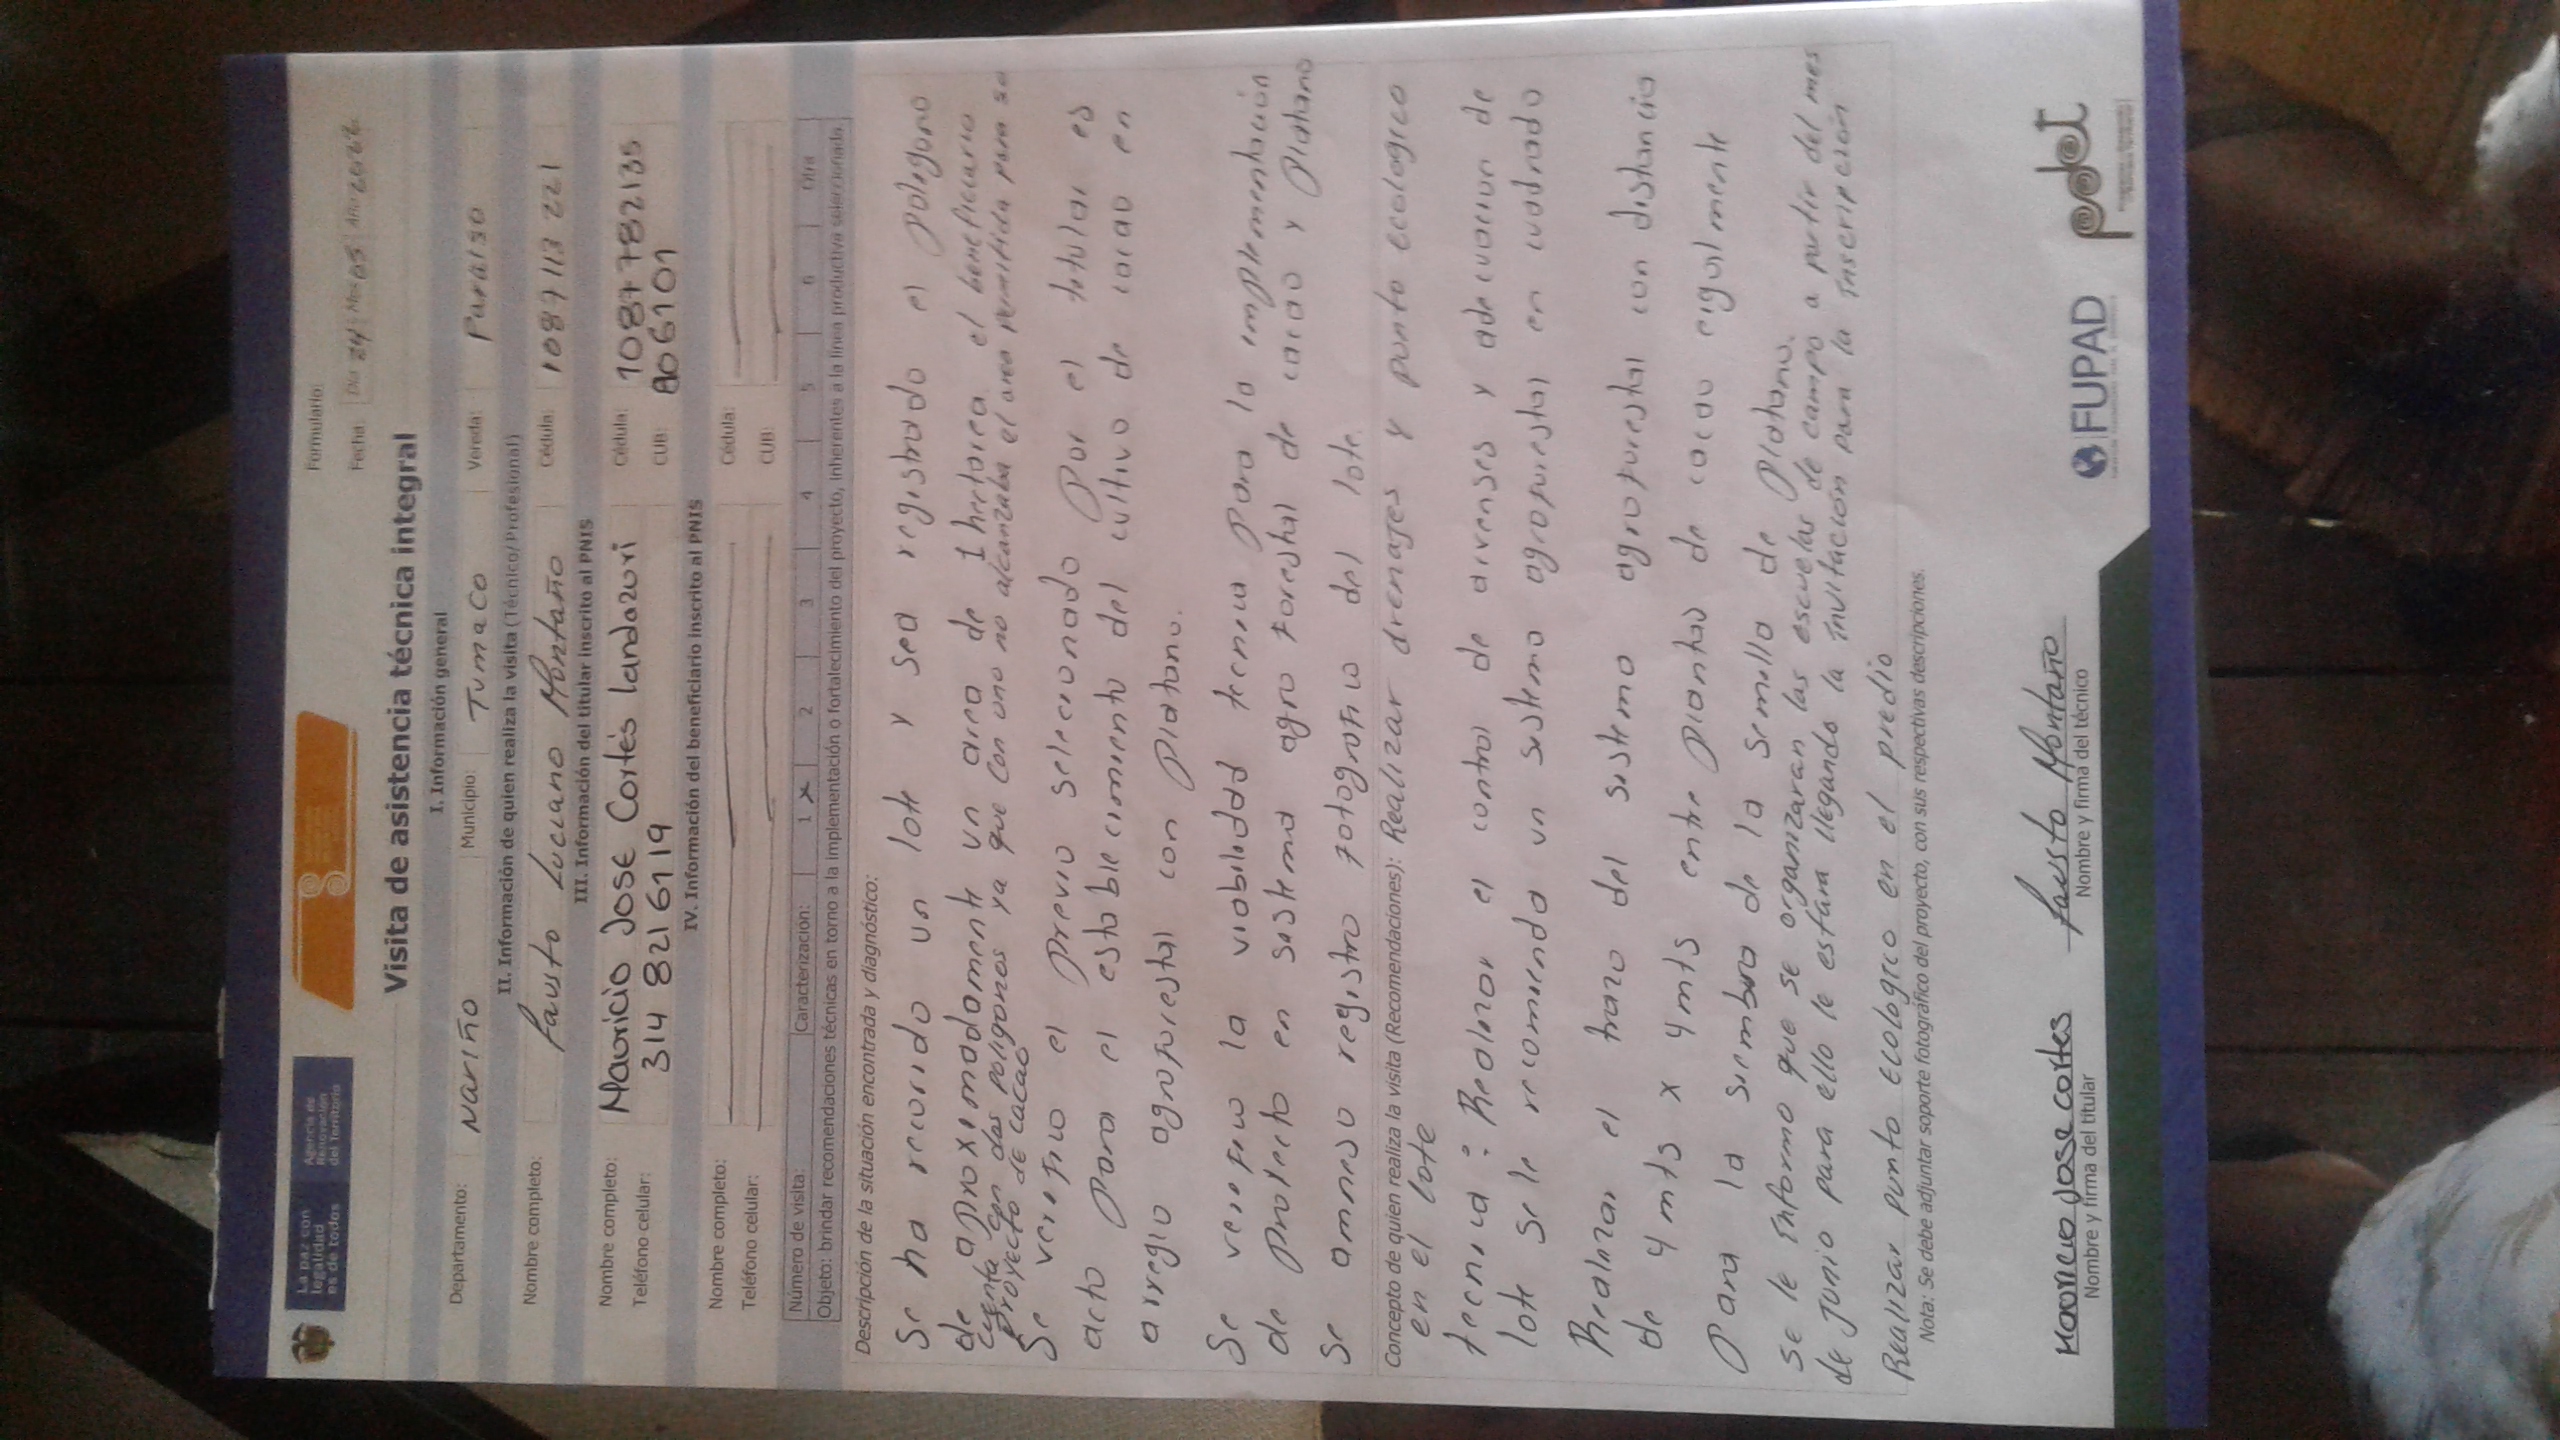 La paz con
legalidad
es de todos
Agencia de
Renovación
del Territorio
Formulario:
Fecha: Día 24 Mes 05 Año 2022
Visita de asistencia técnica integral
I. Información general
Departamento: Nariño Municipio: Tumaco Vereda: Paraiso
II. Información de quien realiza la visita (Técnico/Profesional)
Nombre completo: Fausto Luciano Montaño Cédula: 1089113221
III. Información del titular inscrito al PNIS
Nombre completo: Mauricio Jose Cortés landazuri Cédula: 1087782135
Teléfono celular: 314 8216119 CUB: 806101
IV. Información del beneficiario inscrito al PNIS
Nombre completo: Cédula:
Teléfono celular: CUB:
Número de visita: Caracterización: 1 x 2 3 4 5 6 Otra
Objeto: brindar recomendaciones técnicas en torno a la implementación o fortalecimiento del proyecto, inherentes a la línea productiva seleccionada.
Descripción de la situación encontrada y diagnóstico:
Se ha recorrido un lote y sea registrado el poligono
de aproximadamente un area de 1 hectarea. el beneficiario
cuenta con dos poligonos ya que con uno no alcanzaba el area permitida para su
proyecto de cacao
Se verifico el previo seleccionado por el titular es
acto para el establecimiento del cultivo de cacao en
arreglo agroforestal con platano.
Se verifico la viabilidad tecnica para la implementación
de protecto en sistema agro forestal de cacao y platano
Se amneso registro fotografico del lote.
Concepto de quien realiza la visita (Recomendaciones): Realizar drenajes y punto ecologico
en el lote
tecnica: Realizar el control de arvenses y adecuacion de
lote se le recomienda un sistema agroforestal en cuadrado
Realizar el trazo del sistema agroforestal con distancia
de 4mts x 4mts entre plantas de cacao eigualmente
para la siembra de la semilla de platano.
se le informo que se organizaran las escuelas de campo a partir del mes
de Junio para ello le estara llegando la invitación para la inscripción
Realizar punto ecologico en el predio
Nota: Se debe adjuntar soporte fotográfico del proyecto, con sus respectivas descripciones.
Mauricio Jose cortes Fausto Montaño
Nombre y firma del titular Nombre y firma del técnico
FUPAD pdet